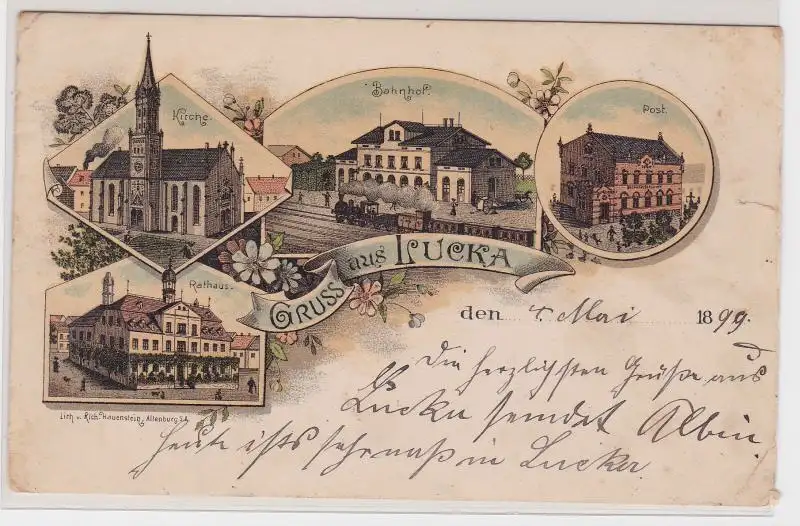 Kirche.
Bahnhof.
Post.
Rathaus.
GRUSS aus LUCKA
den 4. Mai 1899.
Die herzlichsten Grüße aus
Lucka sendet Albin.
Heute ists sehr naß in Lucka.
Lith. v. Rich. Hauenstein, Altenburg S.A.